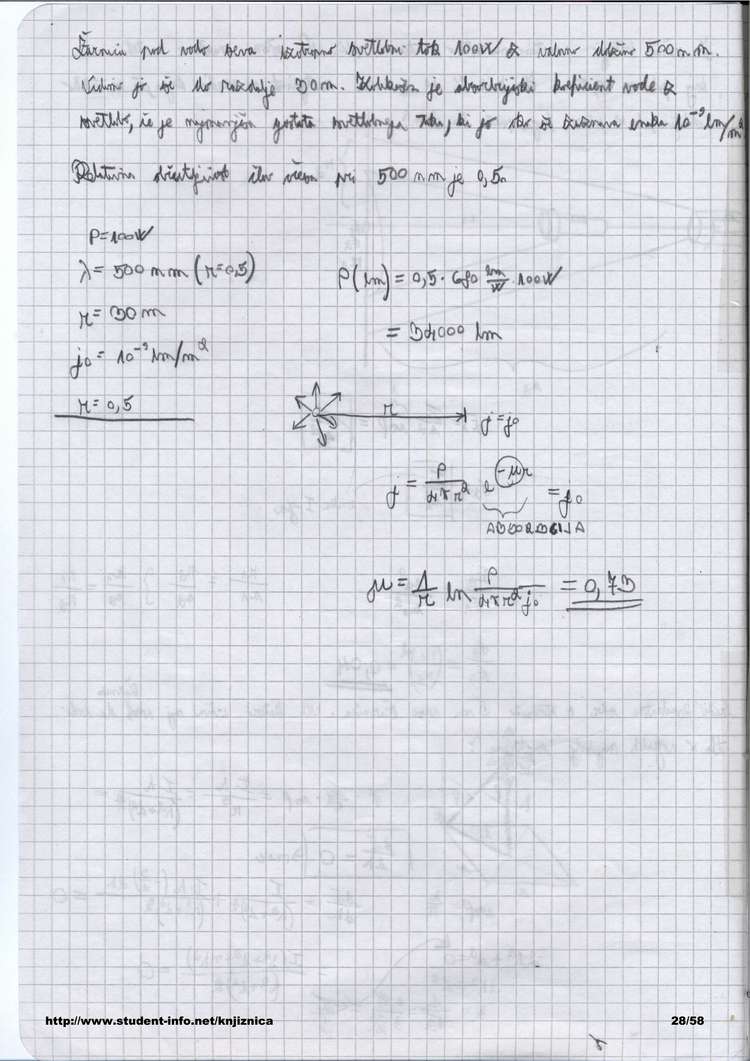 Žarnica pod vodo seva izotropno svetlobni tok 100W z valovno dolžino 500nm.
Vidimo jo še do razdalje 30m. Kolikšen je absorbcijski koeficient vode za
svetlobo, če je najmanjša gostota svetlobnega toka, ki jo oko še zaznava enaka 10⁻⁹ lm/m²
Relativna občutljivost oče­sa pri 500 nm je 0,5.
P=100W
λ = 500 nm (r=0,5)
P(lm) = 0,5 · 680 lm/W · 100W
r = 30m
= 34000 lm
j₀ = 10⁻⁹ lm/m²
r = 0,5
r
j=j₀
j = P/4πr² e^(-μr) = j₀
ABSORBCIJA
μ = 1/r ln P/4πr²j₀ = 0,73
http://www.student-info.net/knjiznica 28/58